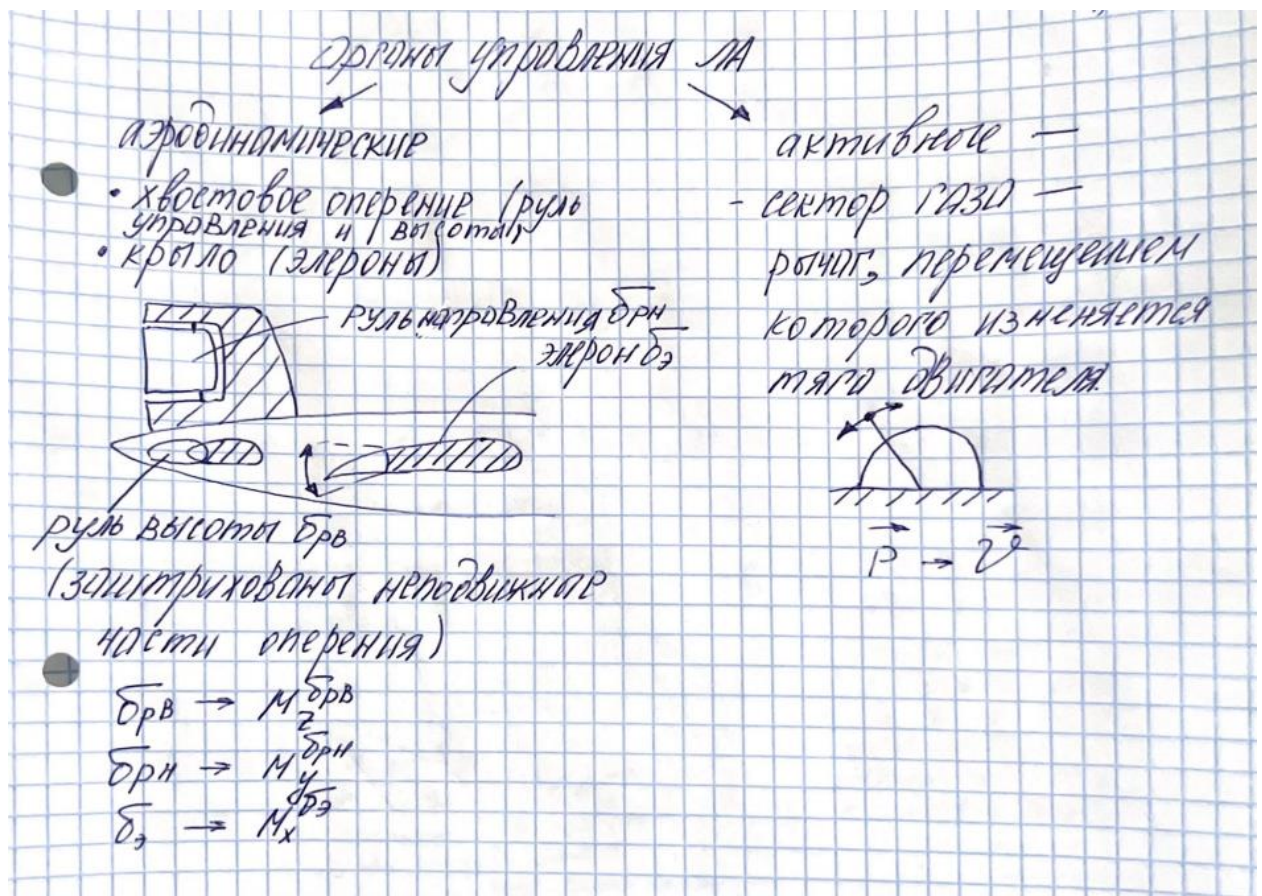 Органы управления ЛА
аэродинамические
• хвостовое оперение (руль
управления и высоты)
• крыло (элероны)
руль направления δрн
элерон δэ
руль высоты δрв
(заштрихованы неподвижные
части оперения)
δрв → Mz^δрв
δрн → My^δрн
δэ → Mx^δэ
активные —
- сектор газа —
рычаг, перемещением
которого изменяется
тяга двигателя.
P → V